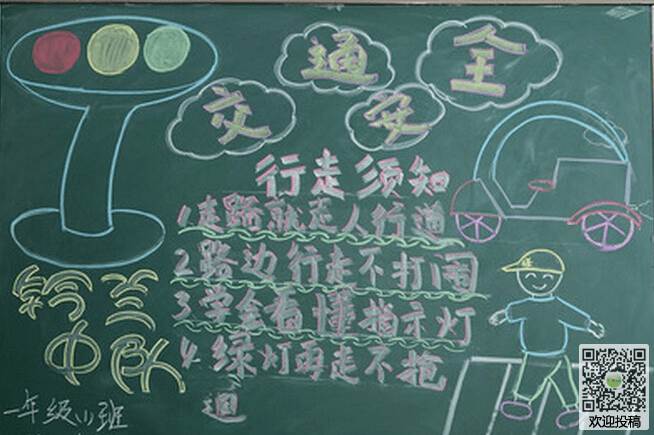 交通安全
行走须知
1.走路就走人行道
2.路边行走不打闹
3.学会看懂指示灯
4.绿灯再走不抢
铃兰
中队
一年级(1)班
欢迎投稿